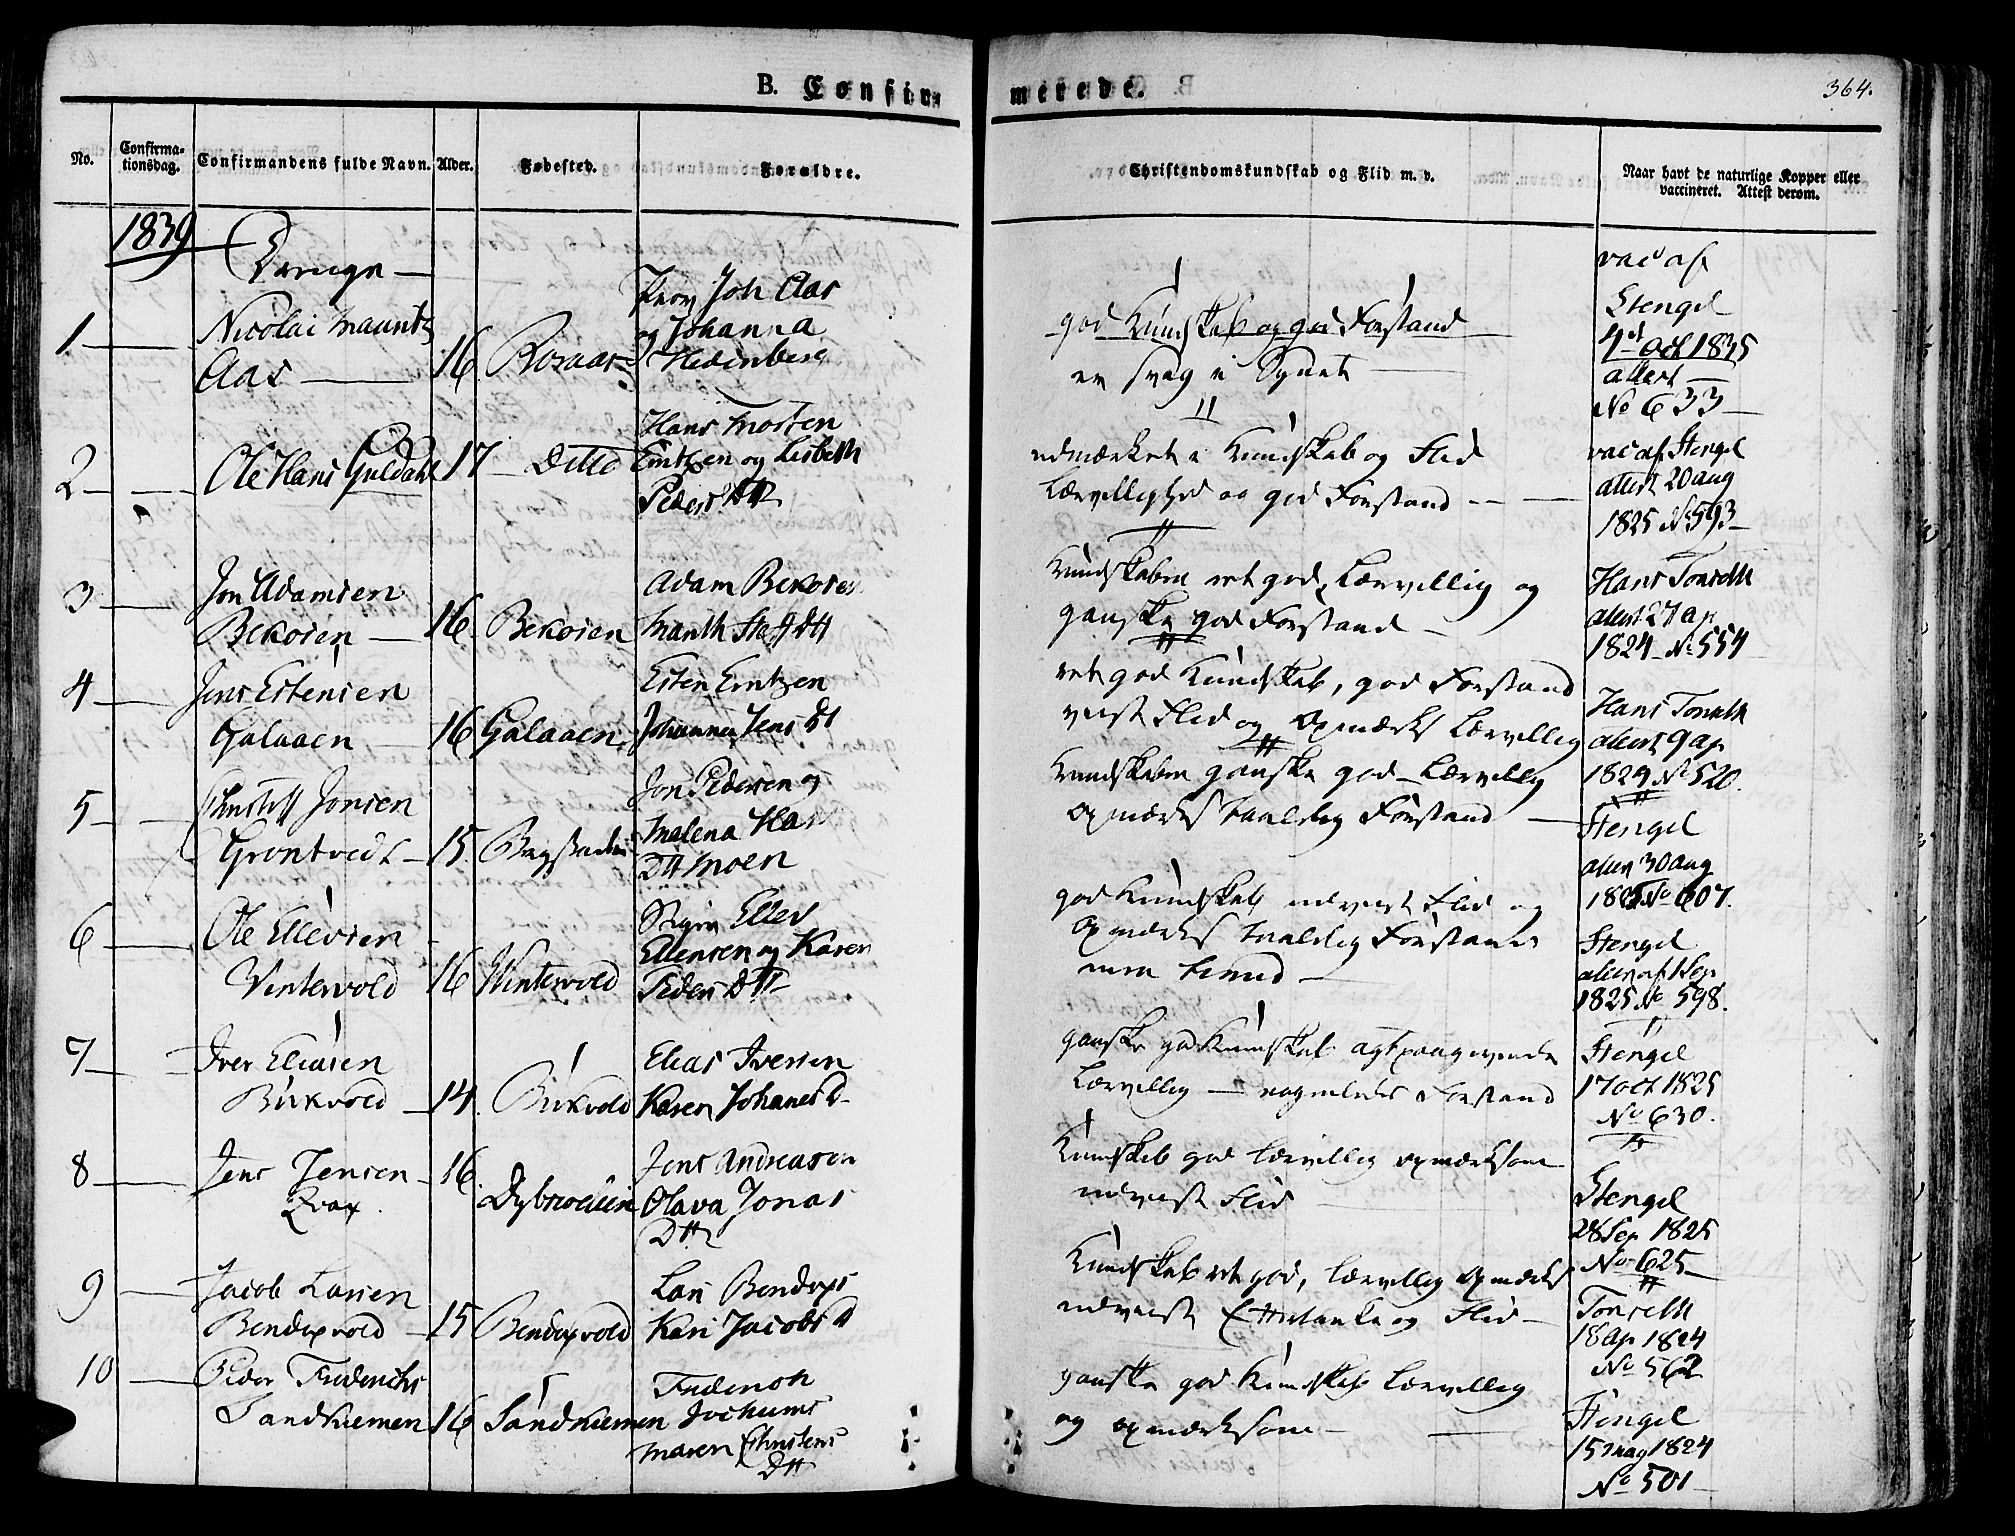 B. Confir
merede.
364.
No.
Confirma-
tionsdag.
Confirmandens fulde Navn.
Alder.
Fødested.
Forældre.
Christendomskundskab og Flid m. v.
Naar havt de naturlige Kopper eller
vaccineret. Attest derom.
1839
Drenge
1
Nicolai Mauritz
Aas
16
Roraas
Joh Aas
og Johanna
Hedenberg
god Kundskab og god Forstand
er svag i Synet
vac af
Stengel
4d Oct 1835
attest
No 633
2
Ole Hans Guldahl
17
Ditto
Hans Morten
Emtzen og Lisbeth
Peders Dtr
udmærket i Kundskab og Flid
Lærvillighed og god Forstand
vac af Stengel
attest 20 aug
1825 No 593
3
Jon Adamsen
Bekosen
16
Bekosen
Adam Bekosen
Marith Staff Dtt
Kundskaben ret god, Lærvillig og
ganske god Forstand
Hans Tonseth
attest 27 ap
1824 No 554
4
Jens Estensen
Galaaen
16
Galaaen
Esten Emtzen
Johanna Jens Dt
ret god Kundskab, god Forstand
Flid og Opmærks Lærvillig
Hans Tonseth
attest 9 ap
1824 No 520.
5
Christoff Jonsen
Grøntvedt
15
Jon Pedersen og
Malena Has
Dtt Moen
Kundskaben ganske god Lærvillig
Opmærks taalelig Forstand
Stengel
attest 30 aug
1825 No 607.
6
Ole Ellevsen
Vintervold
16
Wintervold
Ellev
Ellevsen og Karen
Peders Dtt
god Kundskab udvist Flid og
Opmærks taalelig Forstand
Stengel
attest af 1 Sep
1825 No 598.
7
Iver Eliasen
Birkvold
14
Birkvold
Elias Iversen
Karen Johanes D
ganske god Kundskab agtpaagivende
Lærvillig Forstand
Stengel
17 oct 1825
No 630.
8
Jens Jensen
Kvar
16
Jens Andreasen
Olava Jonas
Dtt
Kundskab god Lærvillig opmærksom
udvist Flid
Stengel
28 Sep 1825
No 625
9
Jacob Larsen
Bendixvold
15
Bendixvold
Lars Bendixs
Kari Jacobs D
Kundskab ret god, Lærvillig Opmærks
udvist Eftertanke og Flid
Tonseth
18 ap 1824
No 562
10
Peder Frederichs
Sandkiernen
16
Sandkiernen
Frederich
Jochums
Maren Christens
Dtt
ganske god Kundskab Lærvillig
og opmærksom
Stengel
15 mag 1824
No 501